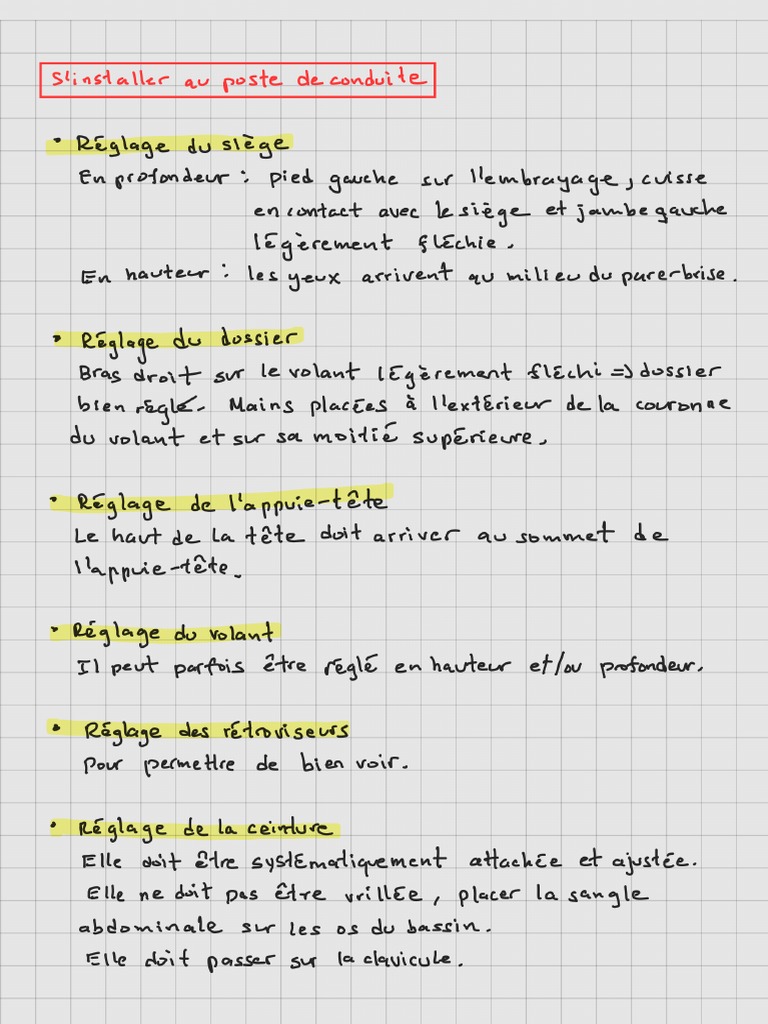 S'installer au poste de conduite
• Réglage du siège
En profondeur : pied gauche sur l'embrayage, cuisse
en contact avec le siège et jambe gauche
légèrement fléchie.
En hauteur : les yeux arrivent au milieu du pare-brise.
• Réglage du dossier
Bras droit sur le volant légèrement fléchi => dossier
bien réglé. Mains placées à l'extérieur de la couronne
du volant et sur sa moitié supérieure.
• Réglage de l'appuie-tête
Le haut de la tête doit arriver au sommet de
l'appuie-tête.
• Réglage du volant
Il peut parfois être réglé en hauteur et/ou profondeur.
• Réglage des rétroviseurs
Pour permettre de bien voir.
• Réglage de la ceinture
Elle doit être systématiquement attachée et ajustée.
Elle ne doit pas être vrillée, placer la sangle
abdominale sur les os du bassin.
Elle doit passer sur la clavicule.